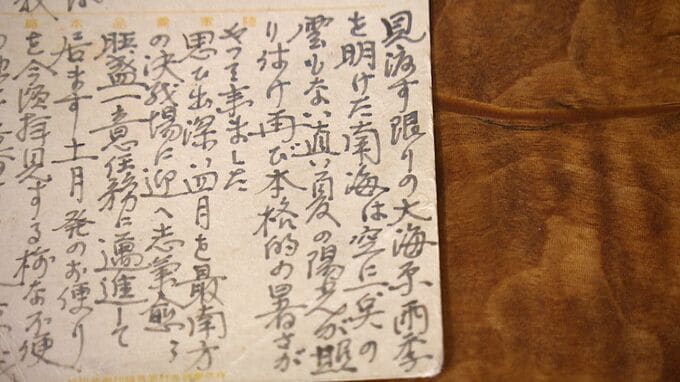 見渡す限りの大海原雨季
を明けた南海は空に一点の
雲もない夏の陽光が照
り付け再び本格的の暑さが
やって来ました
思ひ出深い四月を最南方
の決戦場に迎へ志気愈々
旺盛一意任務に邁進して
居ます十一月発のお便り
を今頃拝見する様な不便